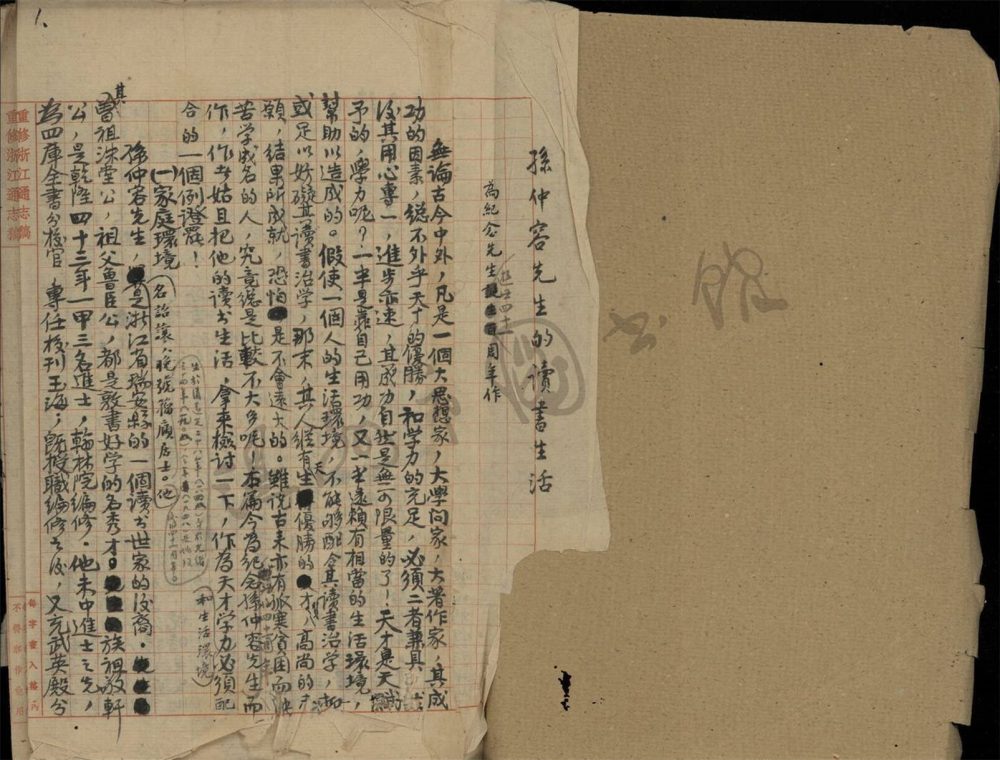 孫仲容先生的讀書生活
為紀念先生逝世四十周年作
無論古今中外，凡是一個大思想家，大學問家，大著作家，其成
功的因素，總不外乎天才的優勝，和學力的充足，必須二者兼具
後其用心專一，進步亦速，其成功自然是無可限量的了！天才是天賦
予的，學力呢？一半是靠自己用功，又一半還賴有相當的生活環境，
幫助以造成的。假使一個人的生活環境，不能够配合其讀書治學，
或足以妨礙其讀書治學，那末，其人縱有天生優勝的才，高尚的
額，結果所成就，恐怕是不會遠大的。雖說古来亦有孤寒貧困而
苦学成名的人，究竟總是比較不大多呢！本篇今為紀念孫仲容先生而
作，作者姑且把他的讀書生活，拿來檢討一下，作為天才学力必須配
合的一個例證罷！
和生活環境
(一)家庭環境
孫仲容先生，名詒讓，晚號籀廎居士。他是浙江省瑞安縣的一個讀書世家的後裔。
其曾祖洙堂公，祖父魯臣公，都是敦書好学的名秀才。族祖敬軒
公，是乾隆四十三年一甲三名進士，翰林院編修。他未中進士之先，
為四庫全書分校官，專任校刊玉海，既授職編修之後，又充武英殿分
重修浙江通志稿
重修浙江通志稿
每字畫入格內
1.